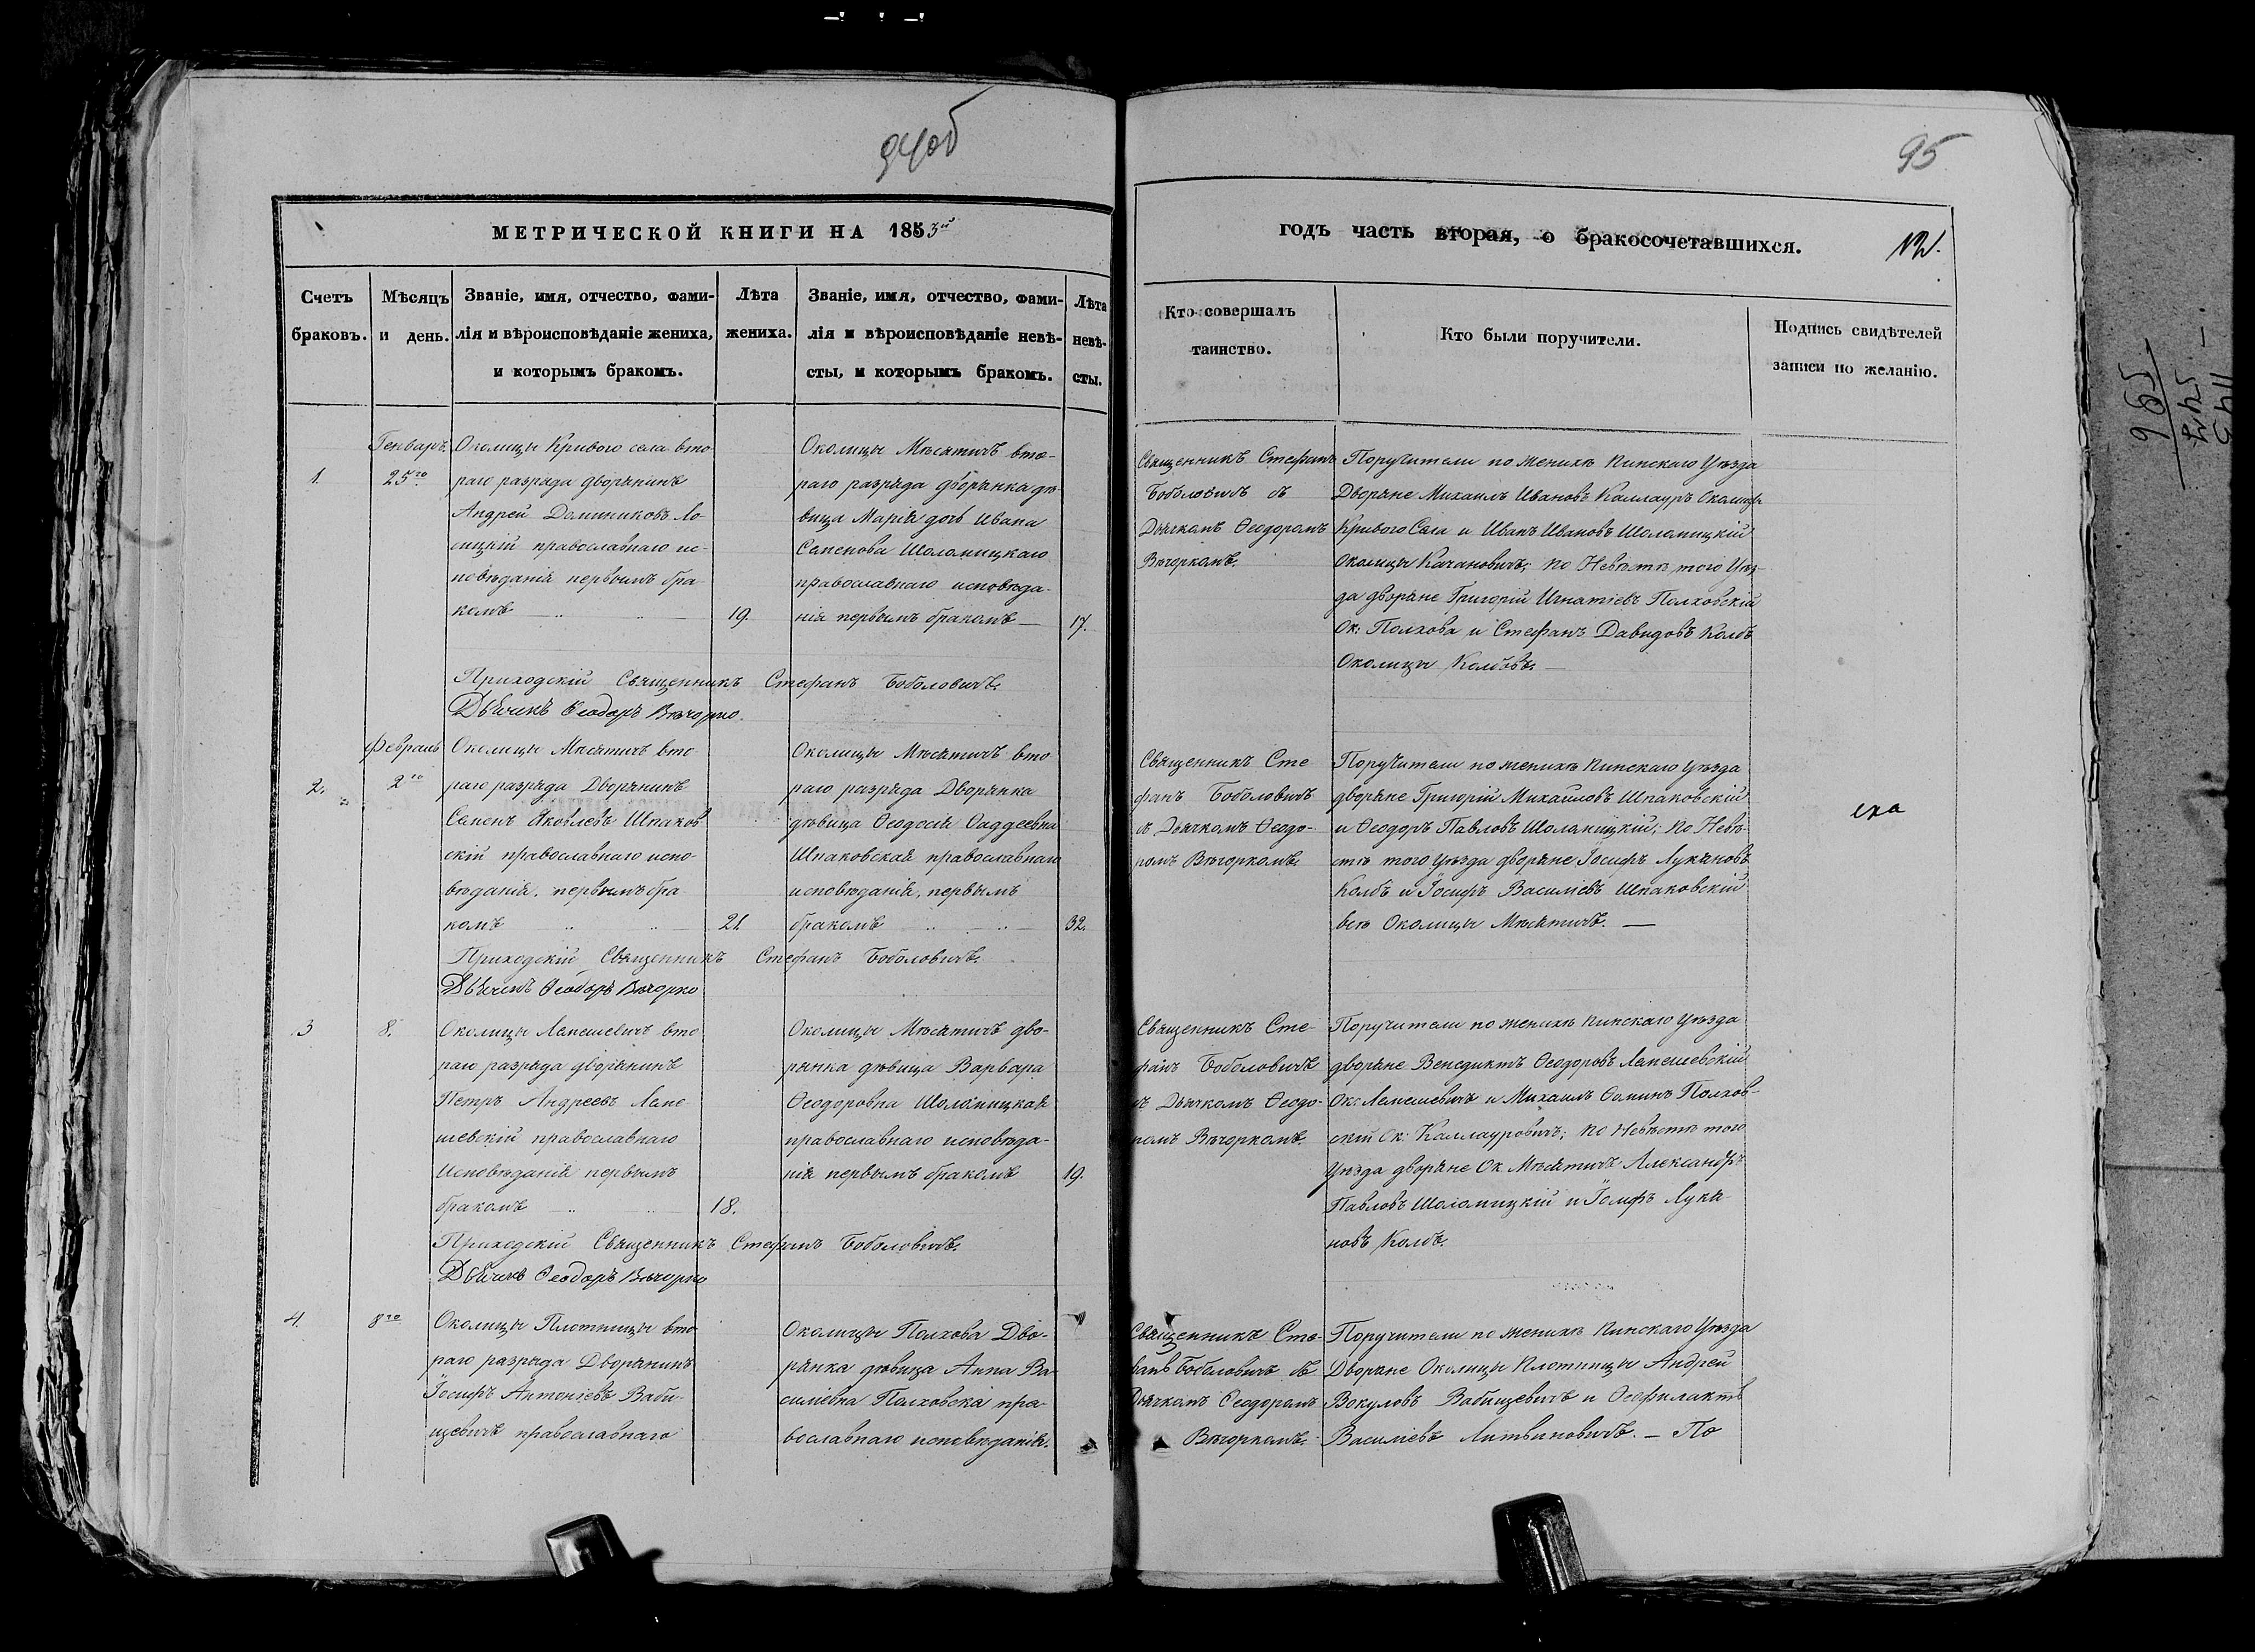 94об
95
МЕТРИЧЕСКОЙ КНИГИ НА 1853й
годъ часть вторая, о бракосочетавшихся.
Счетъ
браковъ.
Мѣсяцъ
и день.
Званіе, имя, отчество, фами-
лія и вѣроисповѣданіе жениха,
и которымъ бракомъ.
Лѣта
жениха.
Званіе, имя, отчество, фами-
лія и вѣроисповѣданіе невѣ-
сты, и которымъ бракомъ.
Лѣта
невѣ-
сты.
Кто совершалъ
таинство.
Кто были поручители.
Подпись свидѣтелей
записи по желанію.
1.
Генварь
25го
Околицы Кривого села вто
раго разряда дворянинъ
Андрей Доминиковъ Ло-
сицкій православнаго ис-
повѣданія первымъ бра
комъ
19.
Околицы Мѣсятичъ вто-
раго разряда дворянка дѣ-
вица Марія дочь Ивана
Семенова Шоломицкаго
православнаго исповѣда-
нія первымъ бракомъ
17.
Священникъ Стефанъ
Боболовичъ съ
Дьячкомъ Ѳеодоромъ
Вѣчоркомъ.
Поручители по женихѣ Пинскаго Уѣзда
Дворяне Михаилъ Ивановъ Каллауръ Околицы
Кривого Села и Иванъ Ивановъ Шоломицкій
Околицы Качановичъ; по Невѣстѣ того Уѣз-
да дворяне Григорій Игнатіевъ Полховскій
Ок: Полхова и Стефанъ Давидовъ Колбъ
Околицы Колбовъ.
Приходскій Священникъ Стефанъ Боболовичъ.
Дьячекъ Ѳеодоръ Вѣчорко.
2.
Февраль
2го
Околицы Мѣсятичъ вто
раго разряда Дворянинъ
Семенъ Яковлевъ Шпаков
скій православнаго испо-
вѣданія, первымъ бра
комъ
21.
Околицы Мѣсятичъ вто
раго разряда Дворянка
дѣвица Ѳеодосія Ѳаддеевна
Шпаковская православнаго
исповѣданія, первымъ
бракомъ
32.
Священникъ Сте
фанъ Боболовичъ
съ Дьячкомъ Ѳеодо-
ромъ Вѣчоркомъ.
Поручители по женихѣ Пинскаго Уѣзда
дворяне Григорій Михайловъ Шпаковскій
и Ѳеодоръ Павловъ Шоломицкій; по Невѣ-
стѣ того Уѣзда дворяне Іосифъ Лукяновъ
Колбъ и Іосифъ Василіевъ Шпаковскій
всѣ Околицы Мѣсятичъ.
Приходскій Священникъ Стефанъ Боболовичъ.
Дьячекъ Ѳеодоръ Вѣчорко
3
8.
Околицы Лемешевичъ вто
раго разряда дворянинъ
Петръ Андреевъ Леме
шевскій православнаго
Исповѣданія первымъ
бракомъ
18.
Околицы Мѣсятичъ дво-
рянка дѣвица Варвара
Ѳеодоровна Шоломицкая
православнаго исповѣда-
нія первымъ бракомъ
19.
Священникъ Сте-
фанъ Боболовичъ
съ Дьячкомъ Ѳеодо-
ромъ Вѣчоркомъ.
Поручители по женихѣ Пинскаго Уѣзда
дворяне Венедиктъ Ѳеодоровъ Лемешевскій
Ок: Лемешевичъ и Михаилъ Ѳоминъ Полхов-
скій Ок: Каллауровичъ; по Невѣстѣ того
Уѣзда дворяне Ок. Мѣсятичъ Александръ
Павловъ Шоломицкій и Іосифъ Лукя-
новъ Колбъ.
Приходскій Священникъ Стефанъ Боболовичъ.
Дьячекъ Ѳеодоръ Вѣчорко
4.
8го
Околицы Плотницы вто
раго разряда Дворянинъ
Іосифъ Антоніевъ Баби-
щевичъ православнаго
Околицы Полхова Дво-
рянка дѣвица Анна Ва-
силіевна Полховска пра-
вославнаго исповѣданія.
Священникъ Сте-
фанъ Боболовичъ съ
Дьячкомъ Ѳеодоромъ
Вѣчоркомъ.
Поручители по женихѣ Пинскаго Уѣзда
Дворяне Околицы Плотницы Андрей
Вокуловъ Бабищевичъ и Ѳеофилактъ
Василіевъ Литвиновичъ. — По